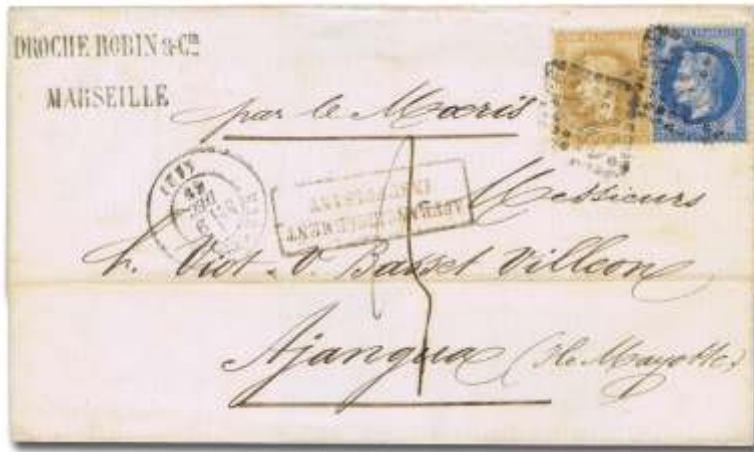 DROCHE ROBIN & Cie
MARSEILLE
par le Mœris
AFFRANCHISSEMENT
INSUFFISANT
Messieurs
h. Viot. V. Basset Villéon
Ajangua (Ile Mayotte)